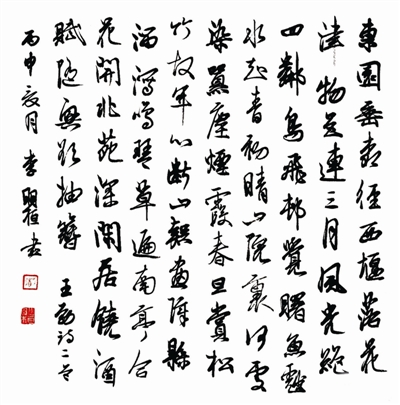 東園垂柳徑西堰落花
津物色連三月風光絕
四鄰鳥飛邨覺曙魚戲
水知春初晴山院裏何處
染囂塵煙霞春旦賞松
竹故年心斷山疑畫障縣
溜瀉鳴琴草遍南亭合
花開北苑深閑居饒酒
賦隨興欲抽簪 王勃詩二首
丙申夏月 李明書